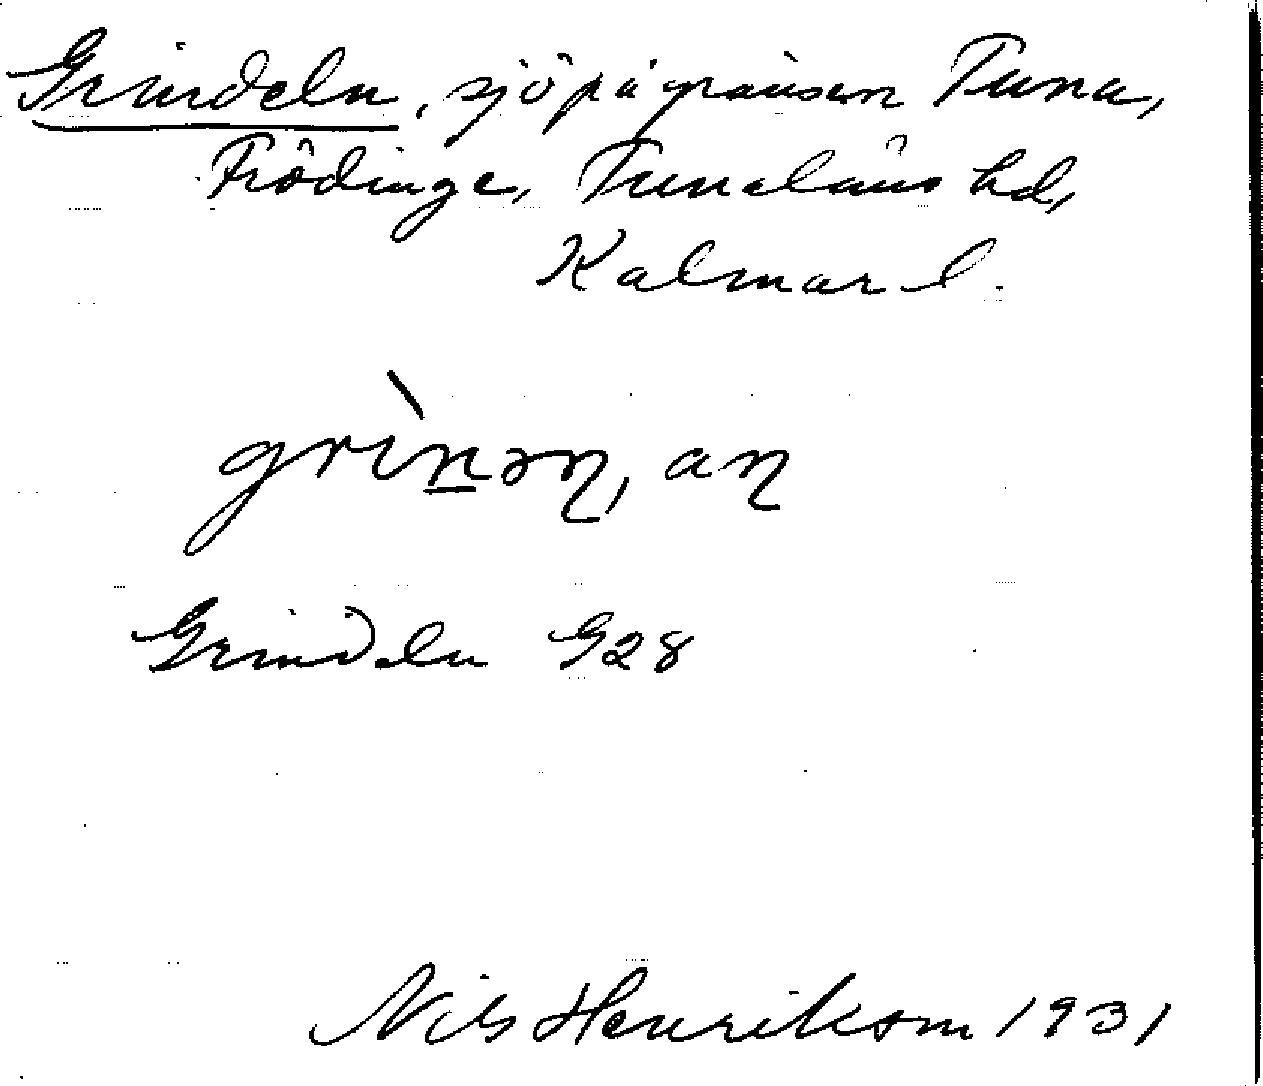 Grindeln, sjö på gränsen Tuna,
Frödinge, Tunaläns hd,
Kalmar l.
grìnəɳ, aɳ
Grindeln G28
Nils Henrikson 1931